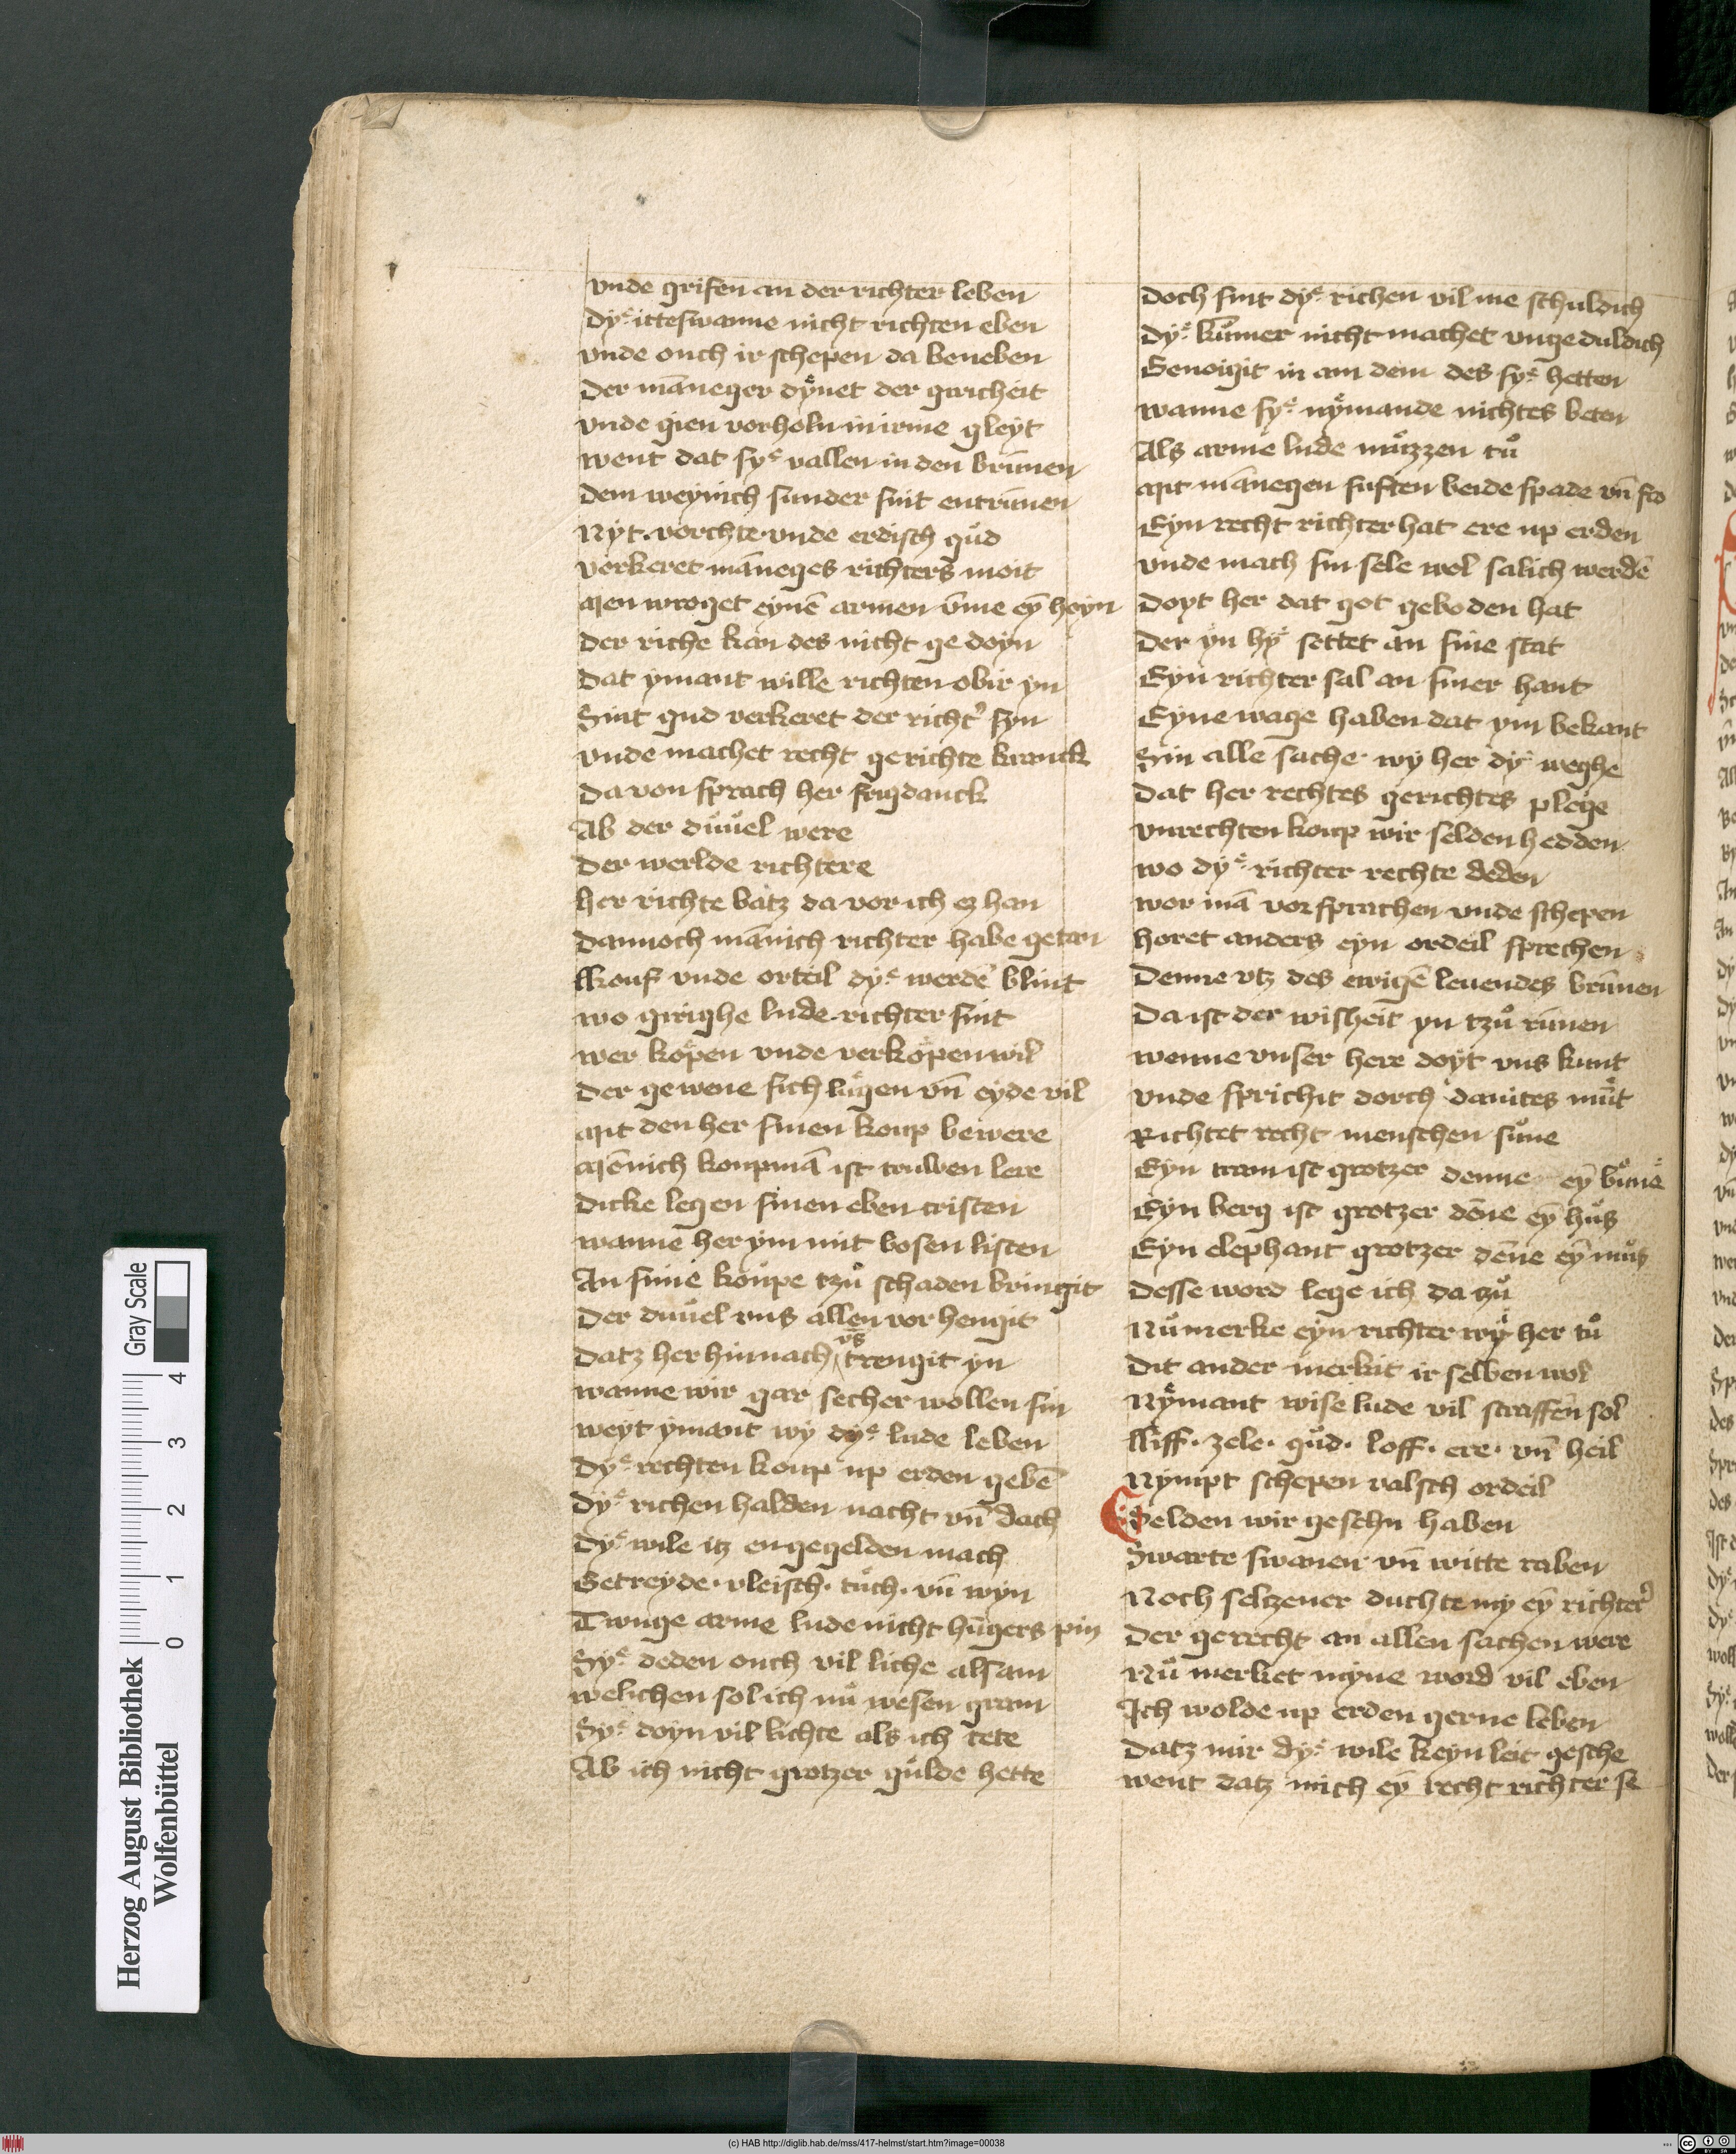 vnde grifen an der richter leben
dyͤ itteswanne nicht richten eben
vnde ouch ir schepen da beneben
Der māneger dyͤnet der gиricheit
vnde gien vorholn in irme gleyt
went dat syͤ vallen in den brūnen
dem weynich sunder sint entrūnen
Nyt. vorchte vnde erdisch gůd
vorkeret māneges richters moit
Men wroget eynē armen vm̄e eȳ hoyn
Der riche kan des nicht ge doyn
Dat ymant wille richten obir yn
Sint gud verkeret der richt' syn
vnde machet recht gerichte kranck
Da von sprach her frigdanck
Ab der důuel were
Der werlde richtere
her richte batz da vor ich ez han
Dannoch mānich richter habe getan
Kouf vnde orteil dyͤ werdē blint
wo girighe lude richter sint
wer koͤpen vnde verkoͤpen wil
Der gewene sich luͤgen vn̄ eyde vil
Mit den her sinen koup bewere
Mēnich koupmā ist truwen lere
Dicke legen sinen eben cristen
wanne her ym mit bosen listen
An sime koůpe tzů schaden bringit
Der duůel vns allen vor hengit
Datz her hinnach vs trengit yn
wanne wir gar secher wollen sin
weyt ymant wy dyͤ lude leben
Dyͤ rechten koup up erden gebē
Dyͤ richen halden nacht vn̄ dach
Dyͤ wile itz en gegelden mach
Getreyde. vleisch. tůch. vn̄ wyn
Twnge arme lude nicht hūgers pin
Syͤ deden ouch vil liche alsam
welichen sol ich nů wesen gram
Syͤ doyn vil lichte als ich tete
Ab ich nicht grotzer guͤlde hette
Doch sint dyͤ richen vil me schuldich
Dyͤ kům̄er nicht machet vngeduldich
Genoigit in am dem des syͤ hetten
wanne syͤ nyͤmande nichtes beten
Als arme lude muͤzzen tů
Mit mānegen suften beide spade vn̄ fro
Eyn recht richter hat ere up erden
vnde mach sin sele wol salich werdē
Doyt her dat got geboden hat
Der yn hyͤ settet an sine stat
Eyn richter sal an siner hant
Eyne wage haben dat ym bekant
Sin alle sache wy her dyͤ weghe
Dat her rechtes gerichtes plege
vnrechten koup wir selden hedden
wo dyͤ richter rechte deden
wor mā vorsprachen vnde schepen
horet anders eyn ordeil sprechen
Denne vtz des ewigē leuendes brūnen
Da ist der wisheit yn tzů rūnen
wenne vnser here doyt vns kunt
vnde sprichit dorch dauites muͤt
Richtet recht menschen suͤne
Eyn tram ist grotzer denne eȳ buͤne
Eyn berg ist grotzer dēne eȳ hůs
Eyn elephant grotzer dēne eȳ můs
Desse word lege ich da tzů
Nů merke eyn richter wyͤ her tů
Dit ander merkit ir selben wol
Nyͤmant wise lude vil straffen sol
Liff. zele. gůd. loff. ere. vn̄ heil
Nympt schepen valsch ordeil
Selden wir geschn haben
Swarte swanen vn̄ witte raben
Noch seltzener duchte my eȳ richter'
Der gerecht an allen sachen were
Nů merket myne word vil eben
Ich wolde up erden gerne leben
Datz mir dyͤ wile keyn leit gesche
went datz mich eȳ recht richter se
Herzog August Bibliothek
Wolfenbüttel
0 1 2 3 4
Gray Scale
(c) HAB http://diglib.hab.de/mss/417-helmst/start.htm?image=00038